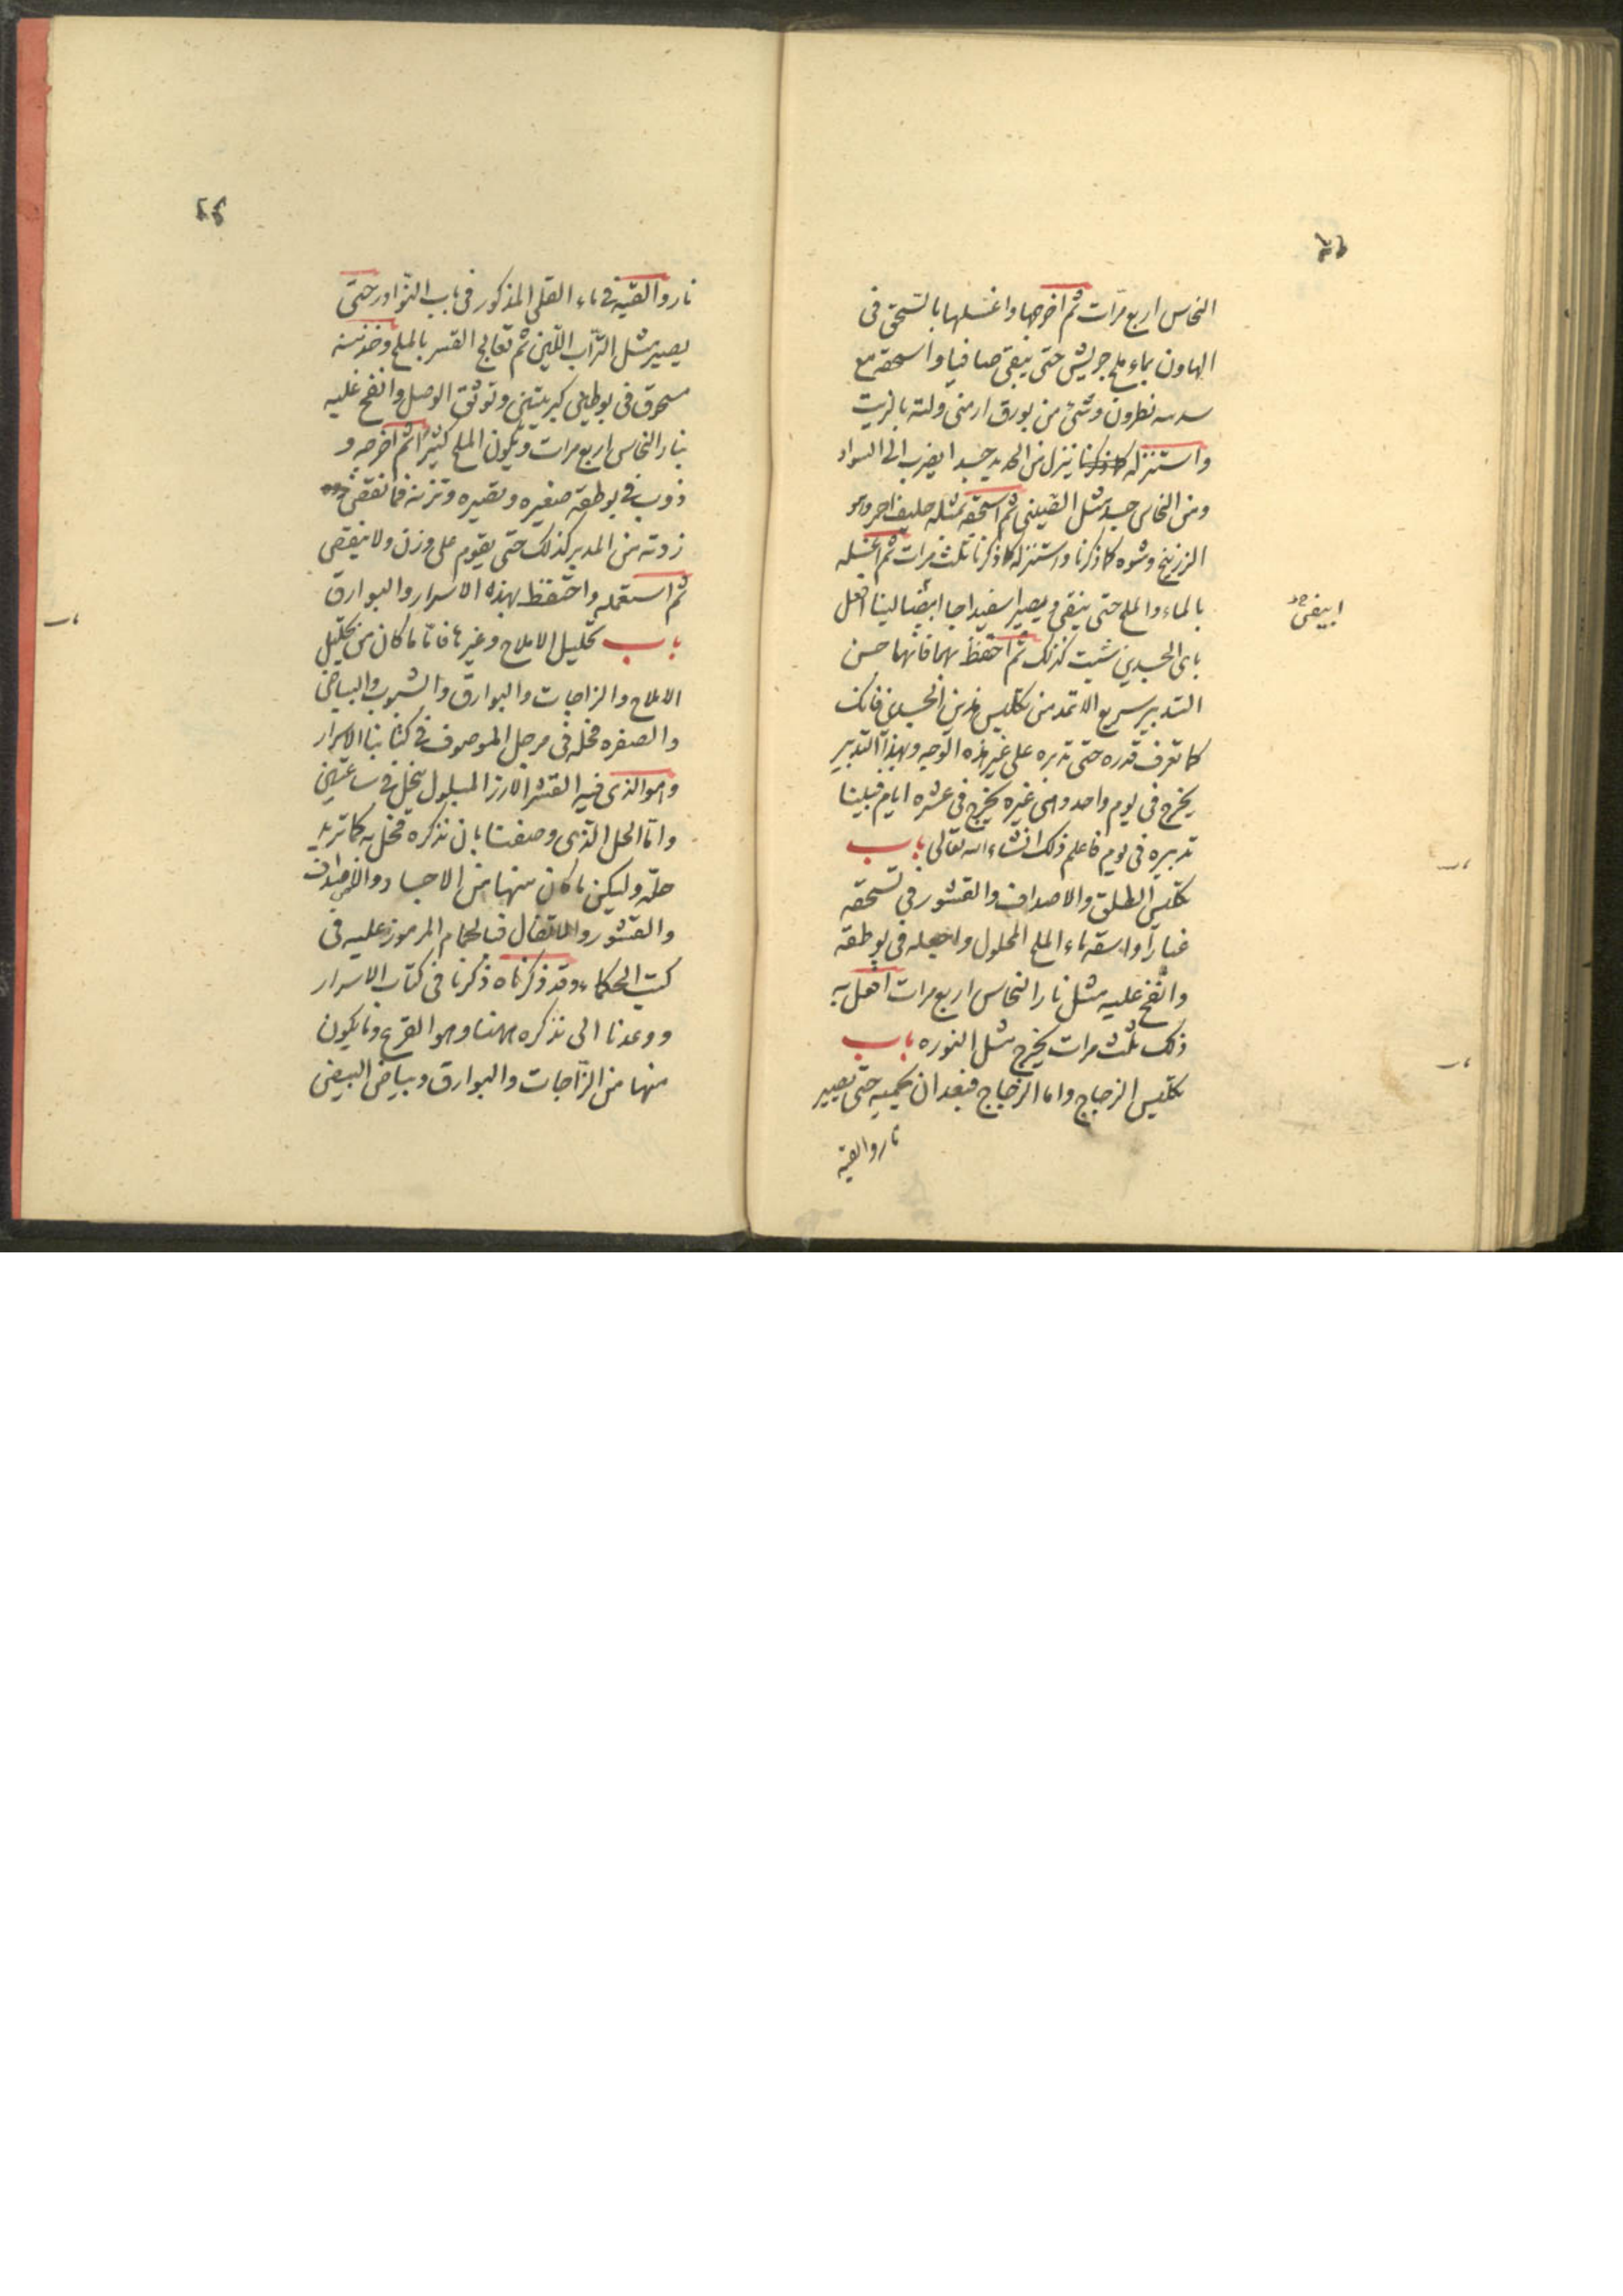 النحاس اربع مرّات ثم اخرجها واغسلها بالسّحق فى
الهاون بماء ملح جريش حتى ينقى صافيا واسحقه مع
سدسه نطرون وشئ من بورق ارمنى ولته بالزيت
واستنزله كما ذكرنا ينزل من الحديد جسدا يضرب الى السواد
ومن النحاس جسد مثل الصينى ثم اسحقه بمثله احمر وهو
الزرنيخ وشوه كما ذكرنا واستنزله كما ذكرنا ثلث مرات ثم اغسله
بالماء والملح حتى ينقى ويصير اسفيداجا ابيضا لينا افعل
ابيض
باى الجسدين شئت كذلك ثم احتفظ بهما فانهما حسن
التدبير سريع من تكليس هذين الجسدين فانك
كما تعرف قدره حتى تدبره على غير هذه الوجه وبهذا التدبير
يخرج فى يوم واحد وفى غيره يخرج فى عشره ايام
تدبيره فى يوم فاعلم ذلك انشاء الله تعالى باب
تكليس الطلق والاصداف والقشور فى تسحقه
غبارا واسقه ماء الملح المحلول واجعله فى بوطقه
وانفخ عليه مثل نار النحاس اربع مرات افعل به
ذلك ثلث مرات يخرج مثل النوره باب
تكليس الزجاج واما الزجاج فبعد ان يحميه حتى يصير
نار والقيه
نار والقيه فى ماء القلى المذكور فى باب النوادر حتى
يصير مثل التراب اللين ثم تعالج القسر بالملح وخذ منه
محرق فى بوطين كبريتين وتوثق الوصل وانفخ عليه
بنار النحاس اربع مرات ويكون الملح كثيرا ثم اخرجه و
ذوب فى بوطقه صغيره وتصيره وتزنه فما نقص
زدته من المدبر كذلك حتى يقوم على وزن ولا ينقص
ثم استعمله واحتفظ بهذه الاسرار والبوارق
باب تحليل الاملاح وغيرها فامّا ما كان من تحليل
الاملاح والزاجات والبوارق والشبوب والبياض
والصفره فحله فى مرجل الموصوف فى كتابنا الاسرار
وهو الذى فيه القشر الارز المبلول ينحل فى ساعتين
وامّا الحل الذى وصفنا بان نذكره فحل به كما تريد
حلّه وليكن ما كان منها من الاجساد والاصداف
والقشور والاثقال فبالحمام المرموز عليه فى
كتب الحكماء وقد ذكرناه ذكرنا فى كتاب الاسرار
ووعدنا الى نذكره ههنا وهو القرع وما يكون
منها من الزاجات والبوارق وبياض البيض